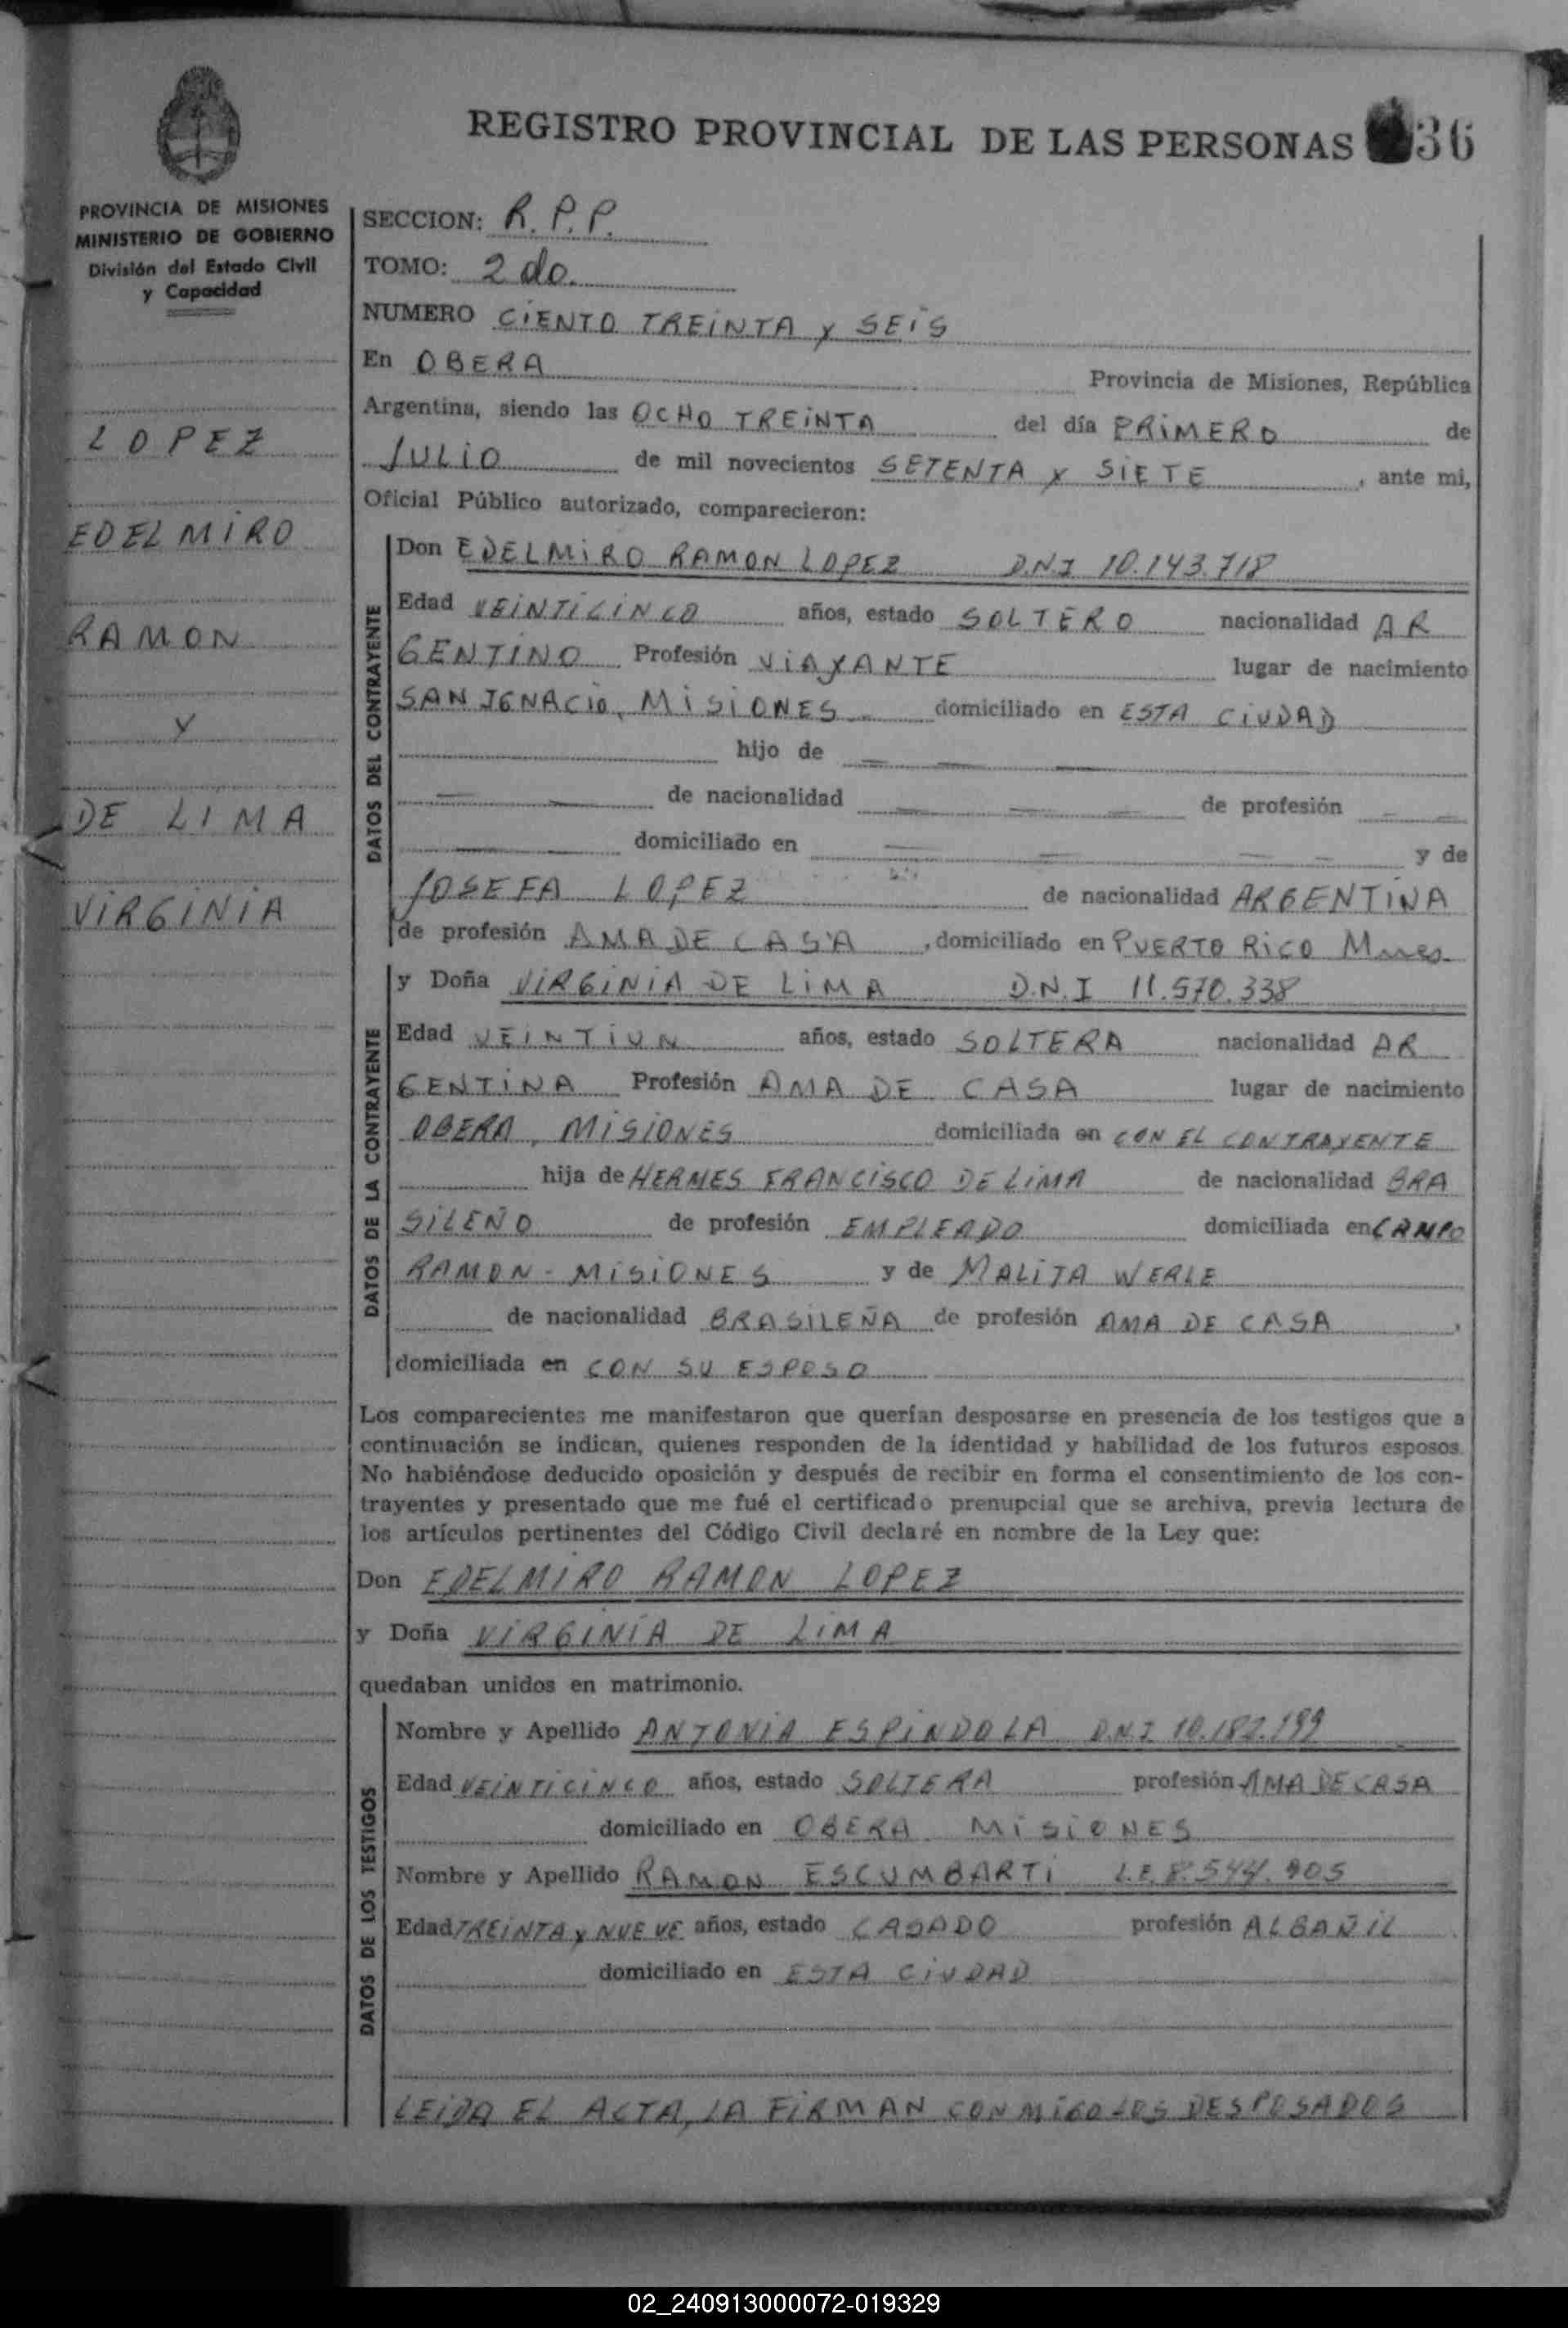 REGISTRO PROVINCIAL DE LAS PERSONAS 36
PROVINCIA DE MISIONES
MINISTERIO DE GOBIERNO
División del Estado Civil
y Capacidad
LOPEZ
EDELMIRO
RAMON
Y
DE LIMA
VIRGINIA
SECCION: R.P.P.
TOMO: 2do.
NUMERO CIENTO TREINTA Y SEIS
En OBERA Provincia de Misiones, República
Argentina, siendo las OCHO TREINTA del día PRIMERO de
JULIO de mil novecientos SETENTA Y SIETE, ante mi,
Oficial Público autorizado, comparecieron:
DATOS DEL CONTRAYENTE
Don EDELMIRO RAMON LOPEZ D.N.I 10.143.718
Edad VEINTICINCO años, estado SOLTERO nacionalidad AR
GENTINO Profesión VIAYANTE lugar de nacimiento
SAN IGNACIO, MISIONES domiciliado en ESTA CIUDAD
hijo de — — —
— — de nacionalidad — — — de profesión — —
— — domiciliado en — — — — y de
JOSEFA LOPEZ de nacionalidad ARGENTINA
de profesión AMA DE CASA, domiciliado en PUERTO RICO Mnes.
DATOS DE LA CONTRAYENTE
y Doña VIRGINIA DE LIMA D.N.I 11.570.338
Edad VEINTIUN años, estado SOLTERA nacionalidad AR
GENTINA Profesión AMA DE CASA lugar de nacimiento
OBERA, MISIONES domiciliada en CON EL CONTRAYENTE
hija de HERMES FRANCISCO DE LIMA de nacionalidad BRA
SILEÑO de profesión EMPLEADO domiciliada en CAMPO
RAMON - MISIONES y de MALITA WERLE
de nacionalidad BRASILEÑA de profesión AMA DE CASA,
domiciliada en CON SU ESPOSO
Los comparecientes me manifestaron que querían desposarse en presencia de los testigos que a
continuación se indican, quienes responden de la identidad y habilidad de los futuros esposos.
No habiéndose deducido oposición y después de recibir en forma el consentimiento de los con-
trayentes y presentado que me fué el certificado prenupcial que se archiva, previa lectura de
los artículos pertinentes del Código Civil declaré en nombre de la Ley que:
Don EDELMIRO RAMON LOPEZ
y Doña VIRGINIA DE LIMA
quedaban unidos en matrimonio.
DATOS DE LOS TESTIGOS
Nombre y Apellido ANTONIA ESPINDOLA D.N.I 10.182.199
Edad VEINTICINCO años, estado SOLTERA profesión AMA DE CASA
domiciliado en OBERA MISIONES
Nombre y Apellido RAMON ESCUMBARTI L.E. 8.544.905
Edad TREINTA Y NUEVE años, estado CASADO profesión ALBAÑIL
domiciliado en ESTA CIUDAD
LEIDA EL ACTA, LA FIRMAN CONMIGO LOS DESPOSADOS
02_240913000072-019329